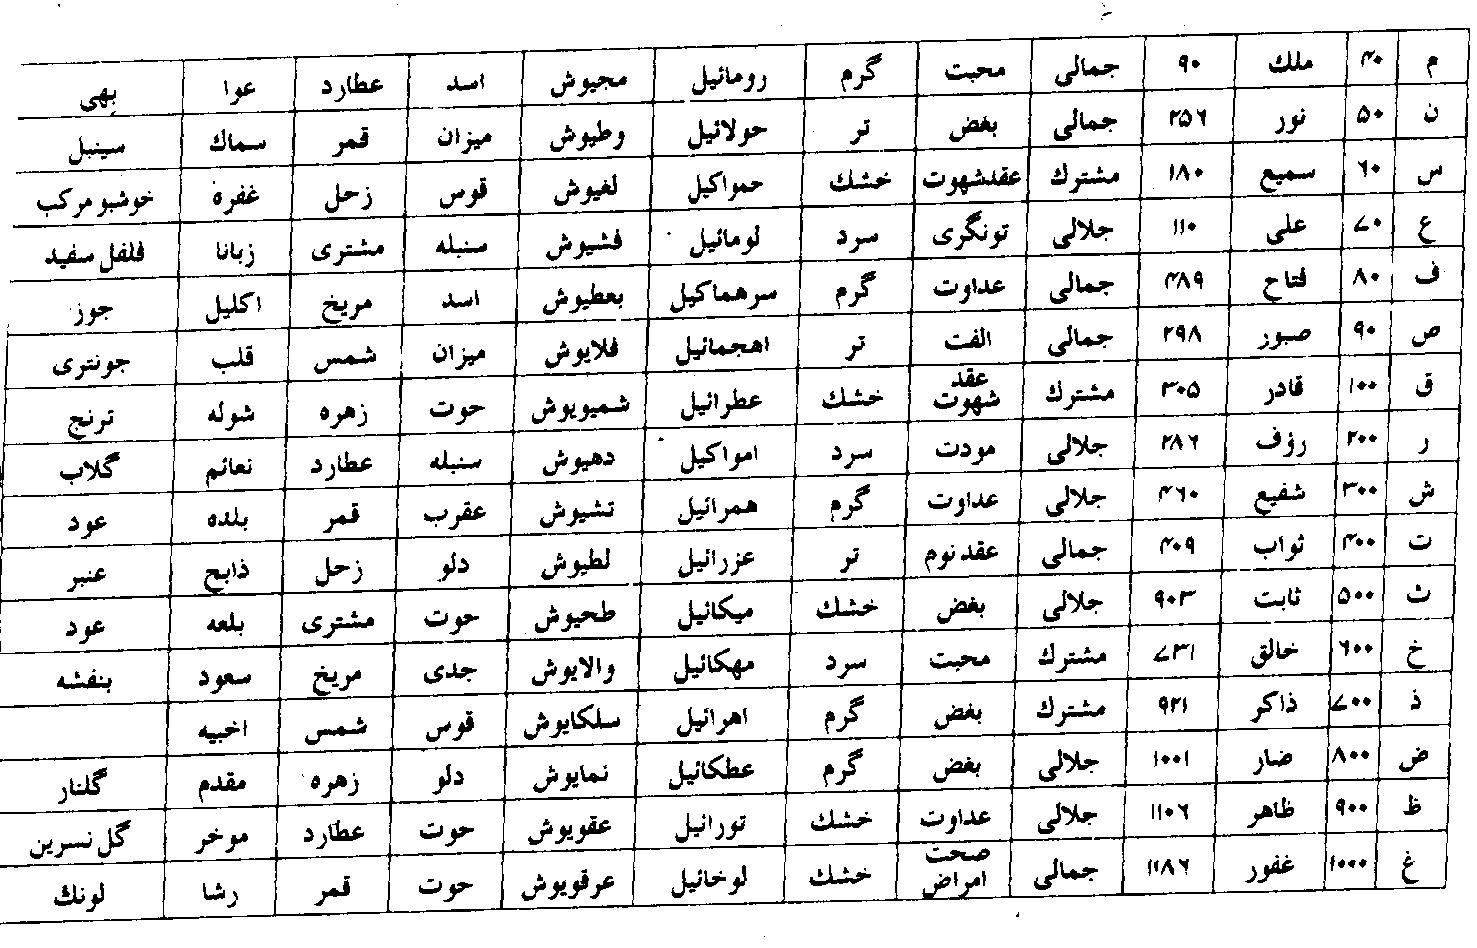 م ۴۰ ملك ۹۰ جمالی محبت گرم رومائیل مجیوش اسد عطارد عوا بهی
ن ۵۰ نور ۲۵۶ جمالی بغض تر حولائیل وطیوش میزان قمر سماك سینبل
س ۶۰ سمیع ۱۸۰ مشترك عقدشهوت خشك حمواکیل لغیوش قوس زحل غفره خوشبو مرکب
ع ۷۰ علی ۱۱۰ جلالی تونگری سرد لومائیل فشیوش سنبله مشتری زبانا فلفل سفید
ف ۸۰ فتاح ۴۸۹ جمالی عداوت گرم سرهماکیل بعطیوش اسد مریخ اکلیل جوز
ص ۹۰ صبور ۲۹۸ جمالی الفت تر اهجمائیل فلایوش میزان شمس قلب جونتری
ق ۱۰۰ قادر ۳۰۵ مشترك عقد شهوت خشك عطرائیل شمیویوش حوت زهره شوله ترنج
ر ۲۰۰ رؤف ۲۸۶ جلالی مودت سرد امواکیل دهیوش سنبله عطارد نعائم گلاب
ش ۳۰۰ شفیع ۴۶۰ جلالی عداوت گرم همرائیل تشیوش عقرب قمر بلده عود
ت ۴۰۰ ثواب ۴۰۹ جمالی عقدنوم تر عزرائیل لطیوش دلو زحل ذابح عنبر
ث ۵۰۰ ثابت ۹۰۳ جلالی بغض خشك میکائیل طحیوش حوت مشتری بلعه عود
خ ۶۰۰ خالق ۷۳۱ مشترك محبت سرد مهکائیل والایوش جدی مریخ سعود بنفشه
ذ ۷۰۰ ذاکر ۹۲۱ مشترك بغض گرم اهرائیل سلکایوش قوس شمس اخبیه
ض ۸۰۰ ضار ۱۰۰۱ جلالی بغض گرم عطکائیل نمایوش دلو زهره مقدم گلنار
ظ ۹۰۰ ظاهر ۱۱۰۶ جلالی عداوت خشك تورائیل عقویوش حوت عطارد موخر گل نسرین
غ ۱۰۰۰ غفور ۱۱۸۶ جمالی صحت امراض خشك لوخائیل عرقویوش حوت قمر رشا لونك